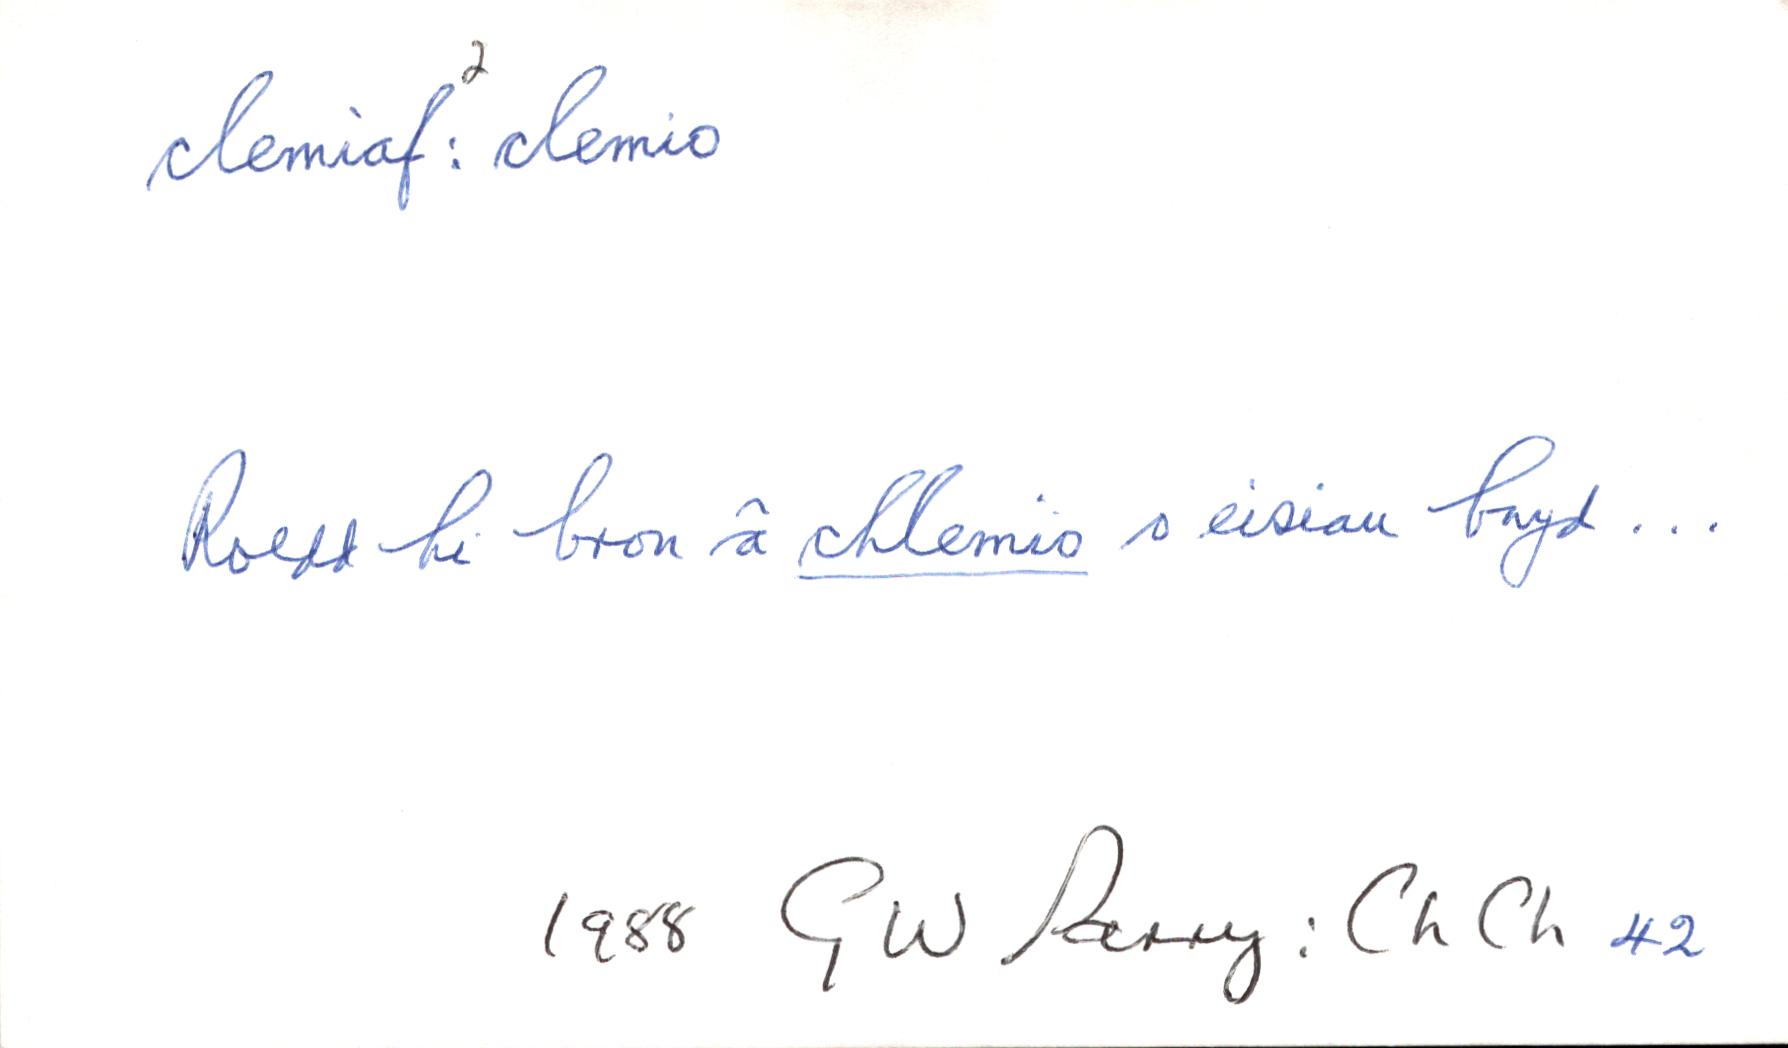 clemiaf²: clemio
Roedd hi bron â chlemio o eisiau bwyd ...
1988 GW Parry: Ch Ch 42